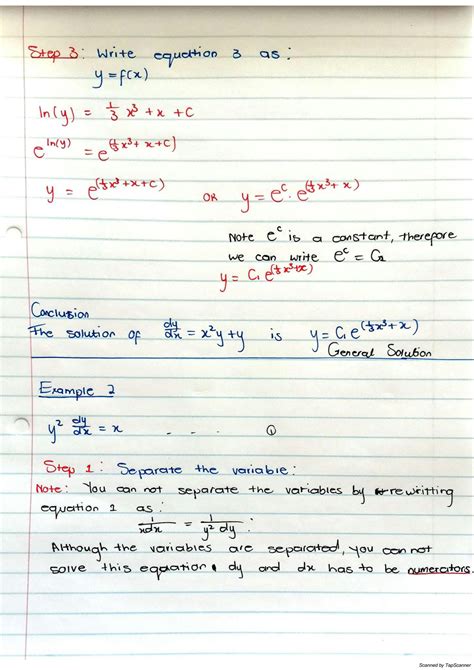 Step 3: Write equation 3 as:
y = f(x)
ln(y) = 1/3 x³ + x + C
e^ln(y) = e^(1/3 x³ + x + C)
y = e^(1/3 x³ + x + C) OR y = e^C · e^(1/3 x³ + x)
Note e^C is a constant, therefore
we can write e^C = C₁
y = C₁ e^(1/3 x³ + x)
Conclusion
The solution of dy/dx = x²y + y is y = C₁ e^(1/3 x³ + x)
General Solution
Example 2
y² dy/dx = x . . . ①
Step 1: Separate the variable:
Note: You can not separate the variables by rewritting
equation 1 as:
1/xdx = 1/y² dy :
Although the variables are separated, you can not
solve this equation. dy and dx has to be numerators.
Scanned by TapScanner